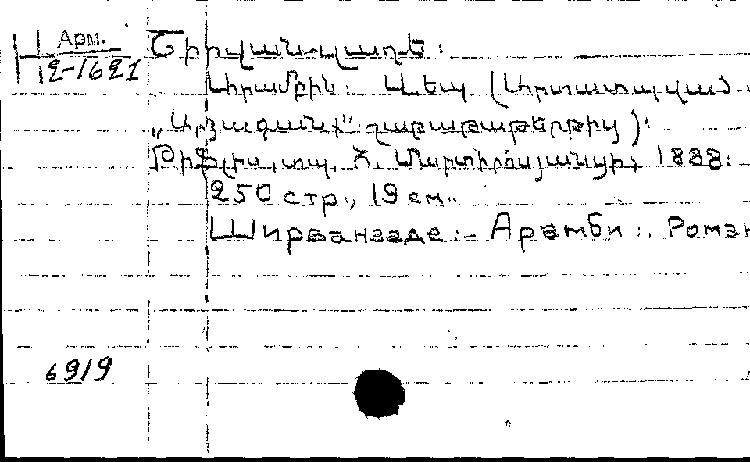 Арм.
2-1621
Շիրվանզադե:
Արամբին: Վեպ (Արտատպված
„Արձագանք" շաբաթաթերթից):
Թիֆլիս, տպ. Մ. Մարտիրոսյանցի, 1888:
250 стр., 19 см.
Ширванзаде:- Арамби:. Роман
6919